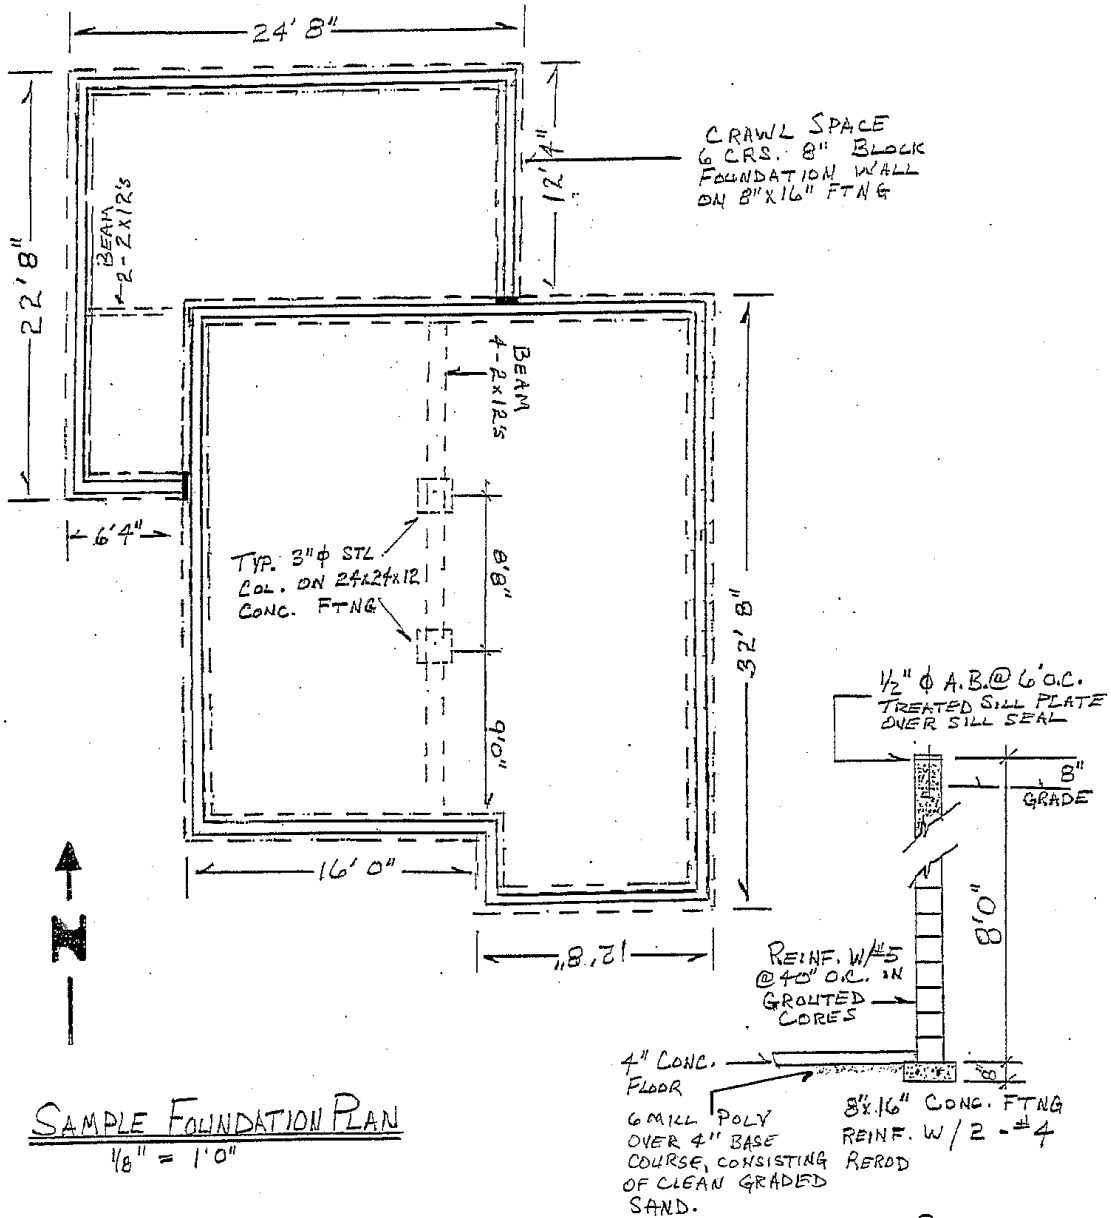 24' 8"
CRAWL SPACE
6 CRS. 8" BLOCK
FOUNDATION WALL
ON 8"X16" FTNG
12' 4"
22' 8"
BEAM
2-2X12's
BEAM
4-2x12's
6'4"
TYP. 3"ϕ STL
COL. ON 24x24x12
CONC. FTNG
8'8"
9'0"
32' 8"
16' 0"
12' 8"
N
1/2" ϕ A.B.@ 6' O.C.
TREATED SILL PLATE
OVER SILL SEAL
8"
GRADE
8'0"
REINF. W/#5
@ 40" O.C. IN
GROUTED
CORES
4" CONC.
FLOOR
8"
6 MILL POLY
OVER 4" BASE
COURSE, CONSISTING
OF CLEAN GRADED
SAND.
8"x16" CONC. FTNG
REINF. W/ 2 - #4
REROD
SAMPLE FOUNDATION PLAN
1/8" = 1'0"